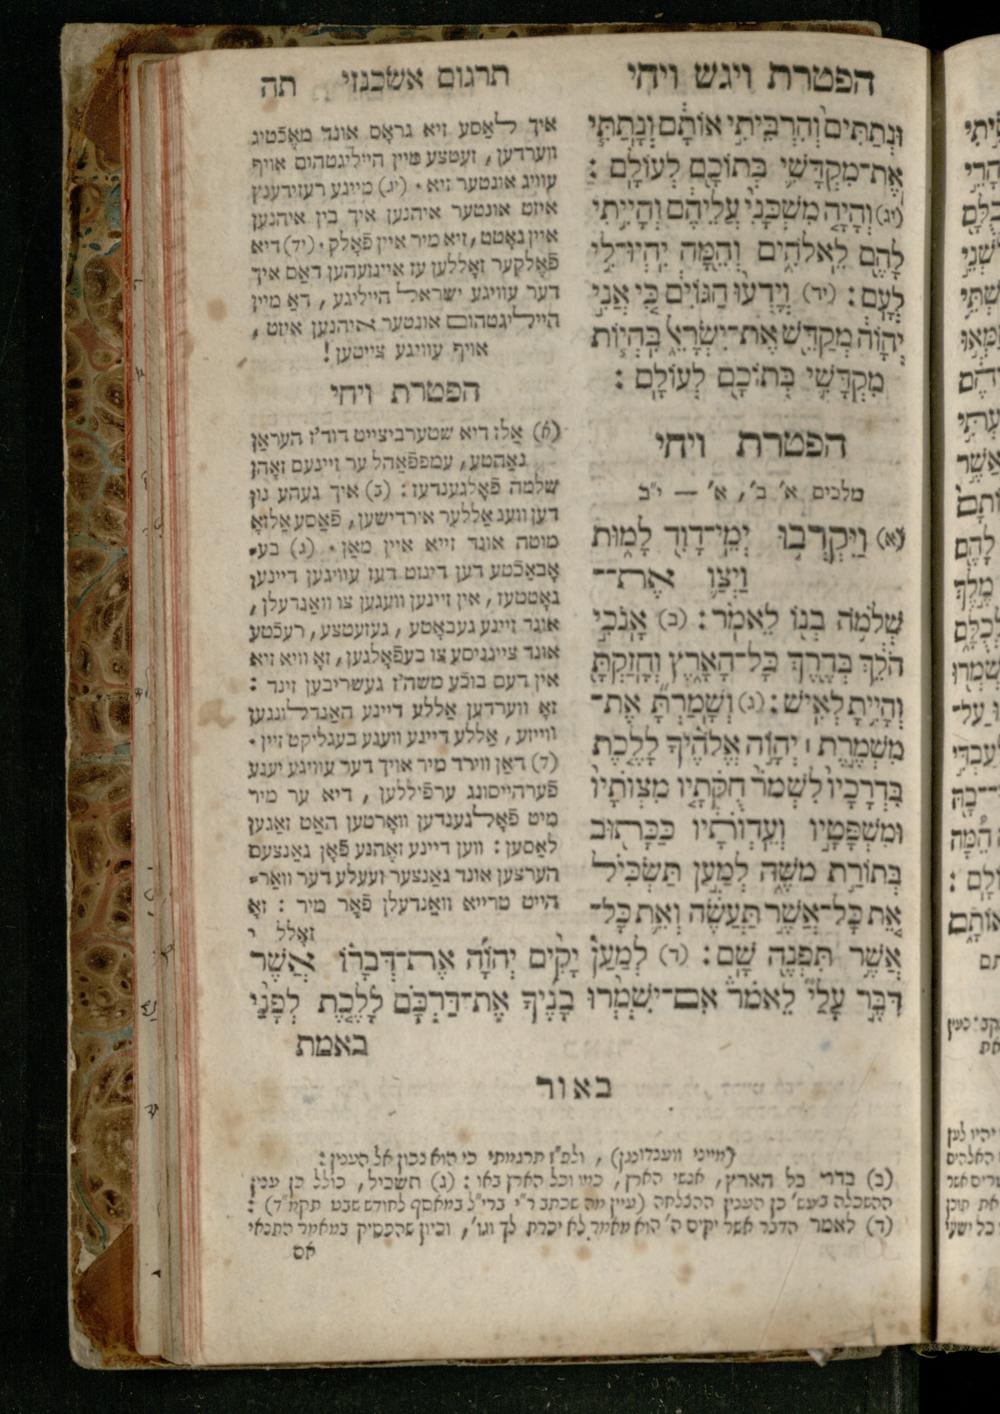 הפטרת ויגש ויחי
תרגום אשכנזי
תה
וּנְתַתִּים֙ וְהִרְבֵּיתִ֣י אוֹתָ֔ם וְנָתַתִּ֧י
אֶת־מִקְדָּשִׁ֛י בְּתוֹכָ֖ם לְעוֹלָֽם׃
(יג) וְהָיָ֤ה מִשְׁכָּנִי֙ עֲלֵיהֶ֔ם וְהָיִ֥יתִי
לָהֶ֖ם לֵֽאלֹהִ֑ים וְהֵ֖מָּה יִֽהְיוּ־לִ֥י
לְעָֽם׃ (יד) וְיָֽדְעוּ֙ הַגּוֹיִ֔ם כִּ֚י אֲנִ֣י
יְהוָֹ֔ה מְקַדֵּ֖שׁ אֶת־יִשְׂרָאֵ֑ל בִּהְי֧וֹת
מִקְדָּשִׁ֛י בְּתוֹכָ֖ם לְעוֹלָֽם׃
הפטרת ויחי
מלכים א' ב', א' — י"ב
(א) וַיִּקְרְב֥וּ יְמֵֽי־דָוִ֖ד לָמ֑וּת
וַיְצַ֛ו אֶת־
שְׁלֹמֹ֥ה בְנ֖וֹ לֵאמֹֽר׃ (ב) אָנֹכִ֣י
הֹלֵ֔ךְ בְּדֶ֖רֶךְ כָּל־הָאָ֑רֶץ וְחָזַקְתָּ֖
וְהָיִ֥יתָ לְאִֽישׁ׃ (ג) וְשָׁמַרְתָּ֞ אֶת־
מִשְׁמֶ֣רֶת ׀ יְהוָֹ֣ה אֱלֹהֶ֗יךָ לָלֶ֤כֶת
בִּדְרָכָיו֙ לִשְׁמֹ֨ר חֻקֹּתָ֤יו מִצְוֹתָיו֙
וּמִשְׁפָּטָ֣יו וְעֵדְוֹתָ֔יו כַּכָּת֖וּב
בְּתוֹרַ֣ת מֹשֶׁ֑ה לְמַ֣עַן תַּשְׂכִּ֗יל
אֵ֚ת כָּל־אֲשֶׁ֣ר תַּֽעֲשֶׂ֔ה וְאֵ֛ת כָּל־
אֲשֶׁ֥ר תִּפְנֶ֖ה שָֽׁם׃ (ד) לְמַ֩עַן֩ יָקִ֨ים יְהוָֹ֜ה אֶת־דְּבָר֗וֹ אֲשֶׁ֨ר
דִּבֶּ֣ר עָלַי֮ לֵאמֹר֒ אִם־יִשְׁמְר֨וּ בָנֶ֜יךָ אֶת־דַּרְכָּ֗ם לָלֶ֤כֶת לְפָנַי֙
באמת
איך לאַסע זיא גראָס אונד מאֶכֿטיג
ווערדען, זעטצע מיין הייליגטהום אויף
עוויג אונטער זיא. (יג) מיינע רעזידענץ
איזט אונטער איהנען איך בין איהנען
איין גאָטט, זיא מיר איין פֿאָלק. (יד) דיא
פֿאָלקער זאָללען עז איינזעהען דאַס איך
דער עוויגע ישראל הייליגע, דאַ מיין
הייליגטהום אונטער איהנען איזט,
אויף עוויגע צייטען!
הפטרת ויחי
(א) אַלז דיא שטערבצייט דוד'ז העראַן
נאַהטע, עמפפֿאַהל ער זיינעם זאָהן
שלמה פֿאָלגענדעז: (ב) איך געהע נון
דען וועג אַללער אירדישען, פֿאַסע אַלזאָ
מוטה אונד זייא איין מאַן. (ג) בע־
אָבאַכֿטע דען דינזט דעז עוויגען דיינען
גאָטטעז, אין זיינען וועגען צו וואַנדעלן,
אונד זיינע געבאָטע, געזעטצע, רעכֿטע
אונד צייגניסע צו בעפֿאָלגען, זאָ וויא זיא
אין דעם בוכֿע משה'ז געשריבען זינד:
זאָ ווערדען אַללע דיינע האַנדלונגען
ווייזע, אַללע דיינע וועגע בעגליקט זיין.
(ד) דאַן ווירד מיר אויך דער עוויגע יענע
פֿערהייסונג ערפֿיללען, דיא ער מיר
מיט פֿאָלגענדען וואָרטען האַט זאַגען
לאַסען: ווען דיינע זאָהנע פֿאָן גאַנצעם
הערצען אונד גאַנצער זעעלע דער וואַר־
הייט טרייא וואַנדעלן פֿאָר מיר: זאָ
זאָלל
באור
(מייני וועגדונגן), ולפ"ז תרגמתי כי הוא נכון אל הענין:
(ב) בדרך כל הארץ, אנשי הארץ, כמו וכל הארץ באו: (ג) תשכיל, כולל כן ענין
ההשכלה בעש' כן הענין ההצלחה (עיין מה שכתב ר"י ברי"ל במאסף לחודש שבט תקמ"ד):
(ד) לאמר הדבר אשר יקים ה' הוא מאמר לא יכרת לך וגו', וכיון שהפסיק במאמר התנאי
אם